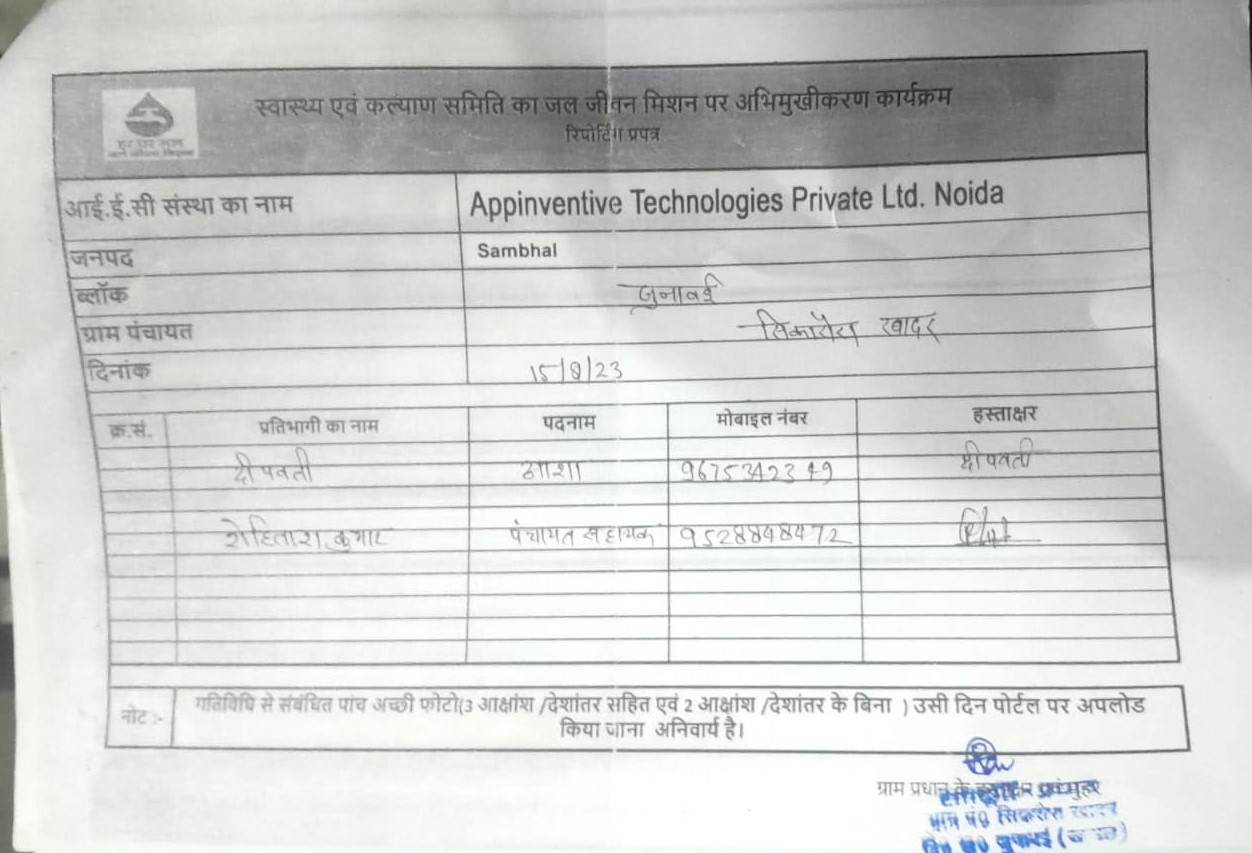 स्वास्थ्य एवं कल्याण समिति का जल जीवन मिशन पर अभिमुखीकरण कार्यक्रम
रिपोर्टिंग प्रपत्र
हर घर जल
जल जीवन मिशन
आई.ई.सी संस्था का नाम Appinventive Technologies Private Ltd. Noida
जनपद Sambhal
ब्लॉक जुनावई
ग्राम पंचायत खादर
दिनांक 15/8/23
क्र.सं. प्रतिभागी का नाम पदनाम मोबाइल नंबर हस्ताक्षर
दीपवती आशा 9675342349 दीपवती
रोहिताश कुमार पंचायत सहायक 9528848472
नोट :- गतिविधि से संबंधित पांच अच्छी फोटो(3 आक्षांश /देशांतर सहित एवं 2 आक्षांश /देशांतर के बिना ) उसी दिन पोर्टल पर अपलोड
किया जाना अनिवार्य है।
ग्राम प्रधान के हस्ताक्षर एवं मुहर